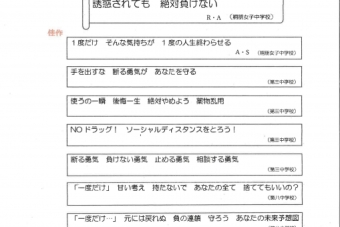 誘惑されても　絶対負けない
R・A （鶴朋女子中学校）
佳作
１度だけ　そんな気持ちが　１度の人生終わらせる
A・S （鶴朋女子中学校）
手を出すな　断る勇気が　あなたを守る
（第五中学校）
使うの一瞬　後悔一生　絶対やめよう　薬物乱用
（第三中学校）
NOドラッグ！　ソーシャルディスタンスをとろう！
（第三中学校）
断る勇気　負けない勇気　止める勇気　相談する勇気
（第三中学校）
「一度だけ」　甘い考え　持たないで　あなたの全て　捨ててもいいの？
（第八中学校）
「一度だけ…」　元には戻れぬ　負の連鎖　守ろう　あなたの未来予想図